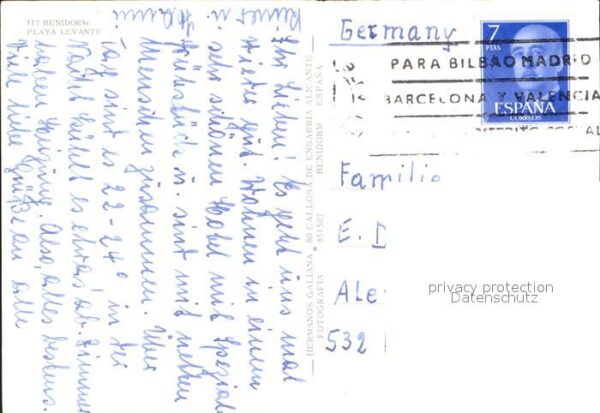 117 BENIDORM
PLAYA LEVANTE
Ihr Lieben! Es geht uns mal
wieder gut. Wohnen in einem
sehr schönen Hotel mit Spezial
Frühstück u. sind mit netten
Menschen zusammen. Über
Tag sind es 22-24° in der
Nacht kühlt es etwas ab. Zimmer
haben Heizung. Also, alles bestens.
Viele liebe Grüße an alle
u. Hanni
HERMANOS GALIANA * 80 CALLOSA DE ENSARRIA ALICANTE
FOTOGRAFIA 851507 BENIDORM ESPAÑA
Germany
7
PTAS
ESPAÑA
CORREOS
PARA BILBAO MADRID
BARCELONA Y VALENCIA
Familie
E. D
Ale
532
privacy protection
Datenschutz